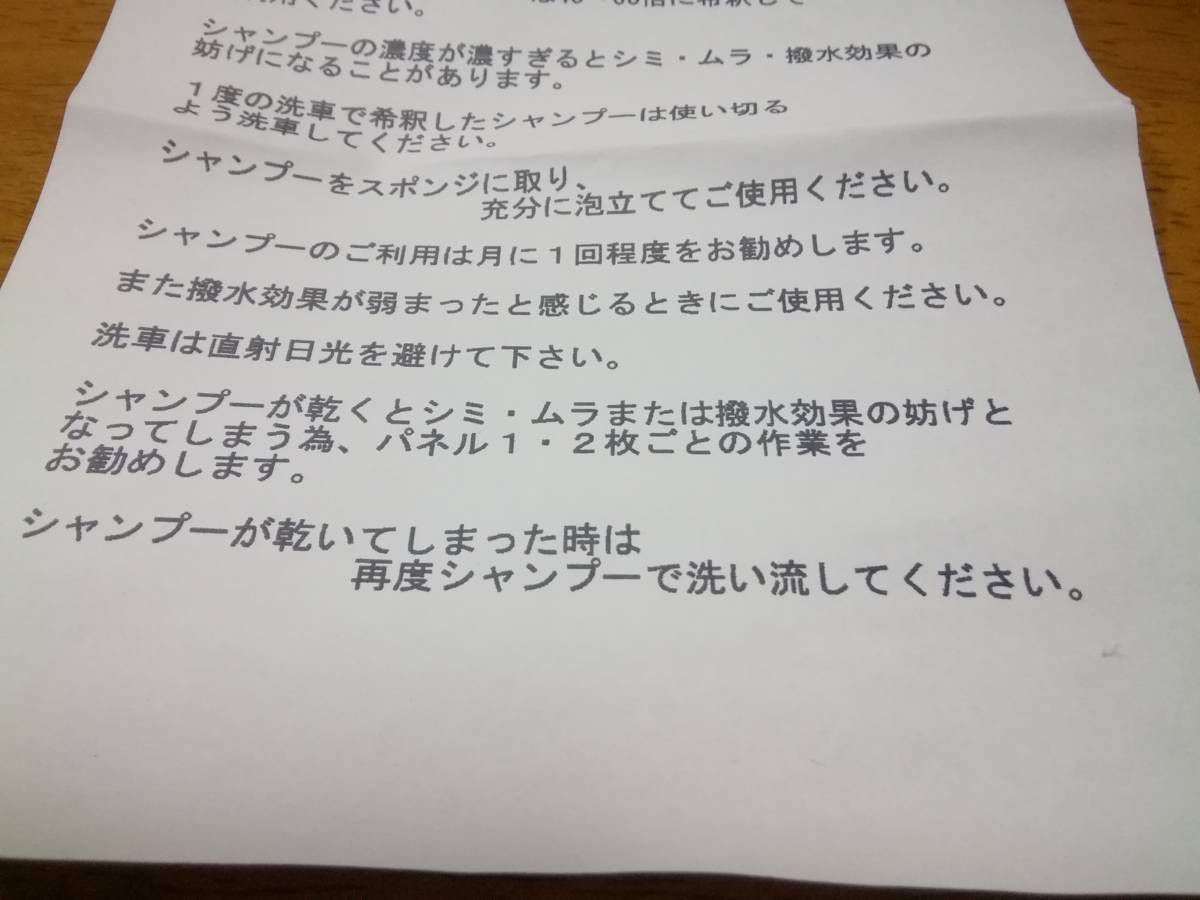 ください。 倍に希釈して
シャンプーの濃度が濃すぎるとシミ・ムラ・撥水効果の
妨げになることがあります。
１度の洗車で希釈したシャンプーは使い切る
よう洗車してください。
シャンプーをスポンジに取り、
充分に泡立ててご使用ください。
シャンプーのご利用は月に１回程度をお勧めします。
また撥水効果が弱まったと感じるときにご使用ください。
洗車は直射日光を避けて下さい。
シャンプーが乾くとシミ・ムラまたは撥水効果の妨げと
なってしまう為、パネル１・２枚ごとの作業を
お勧めします。
シャンプーが乾いてしまった時は
再度シャンプーで洗い流してください。